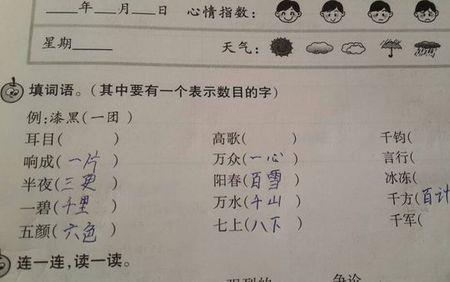 ____年____月____日 心情指数：
星期____ 天气：
填词语。(其中要有一个表示数目的字)
例:漆黑(一团)
耳目( ) 高歌( ) 千钧(
响成(一片) 万众(一心) 言行(
半夜(三更) 阳春(百雪) 冰冻(
一碧(千里) 万水(千山) 千方(百计
五颜(六色) 七上(八下) 千军(
连一连,读一读。